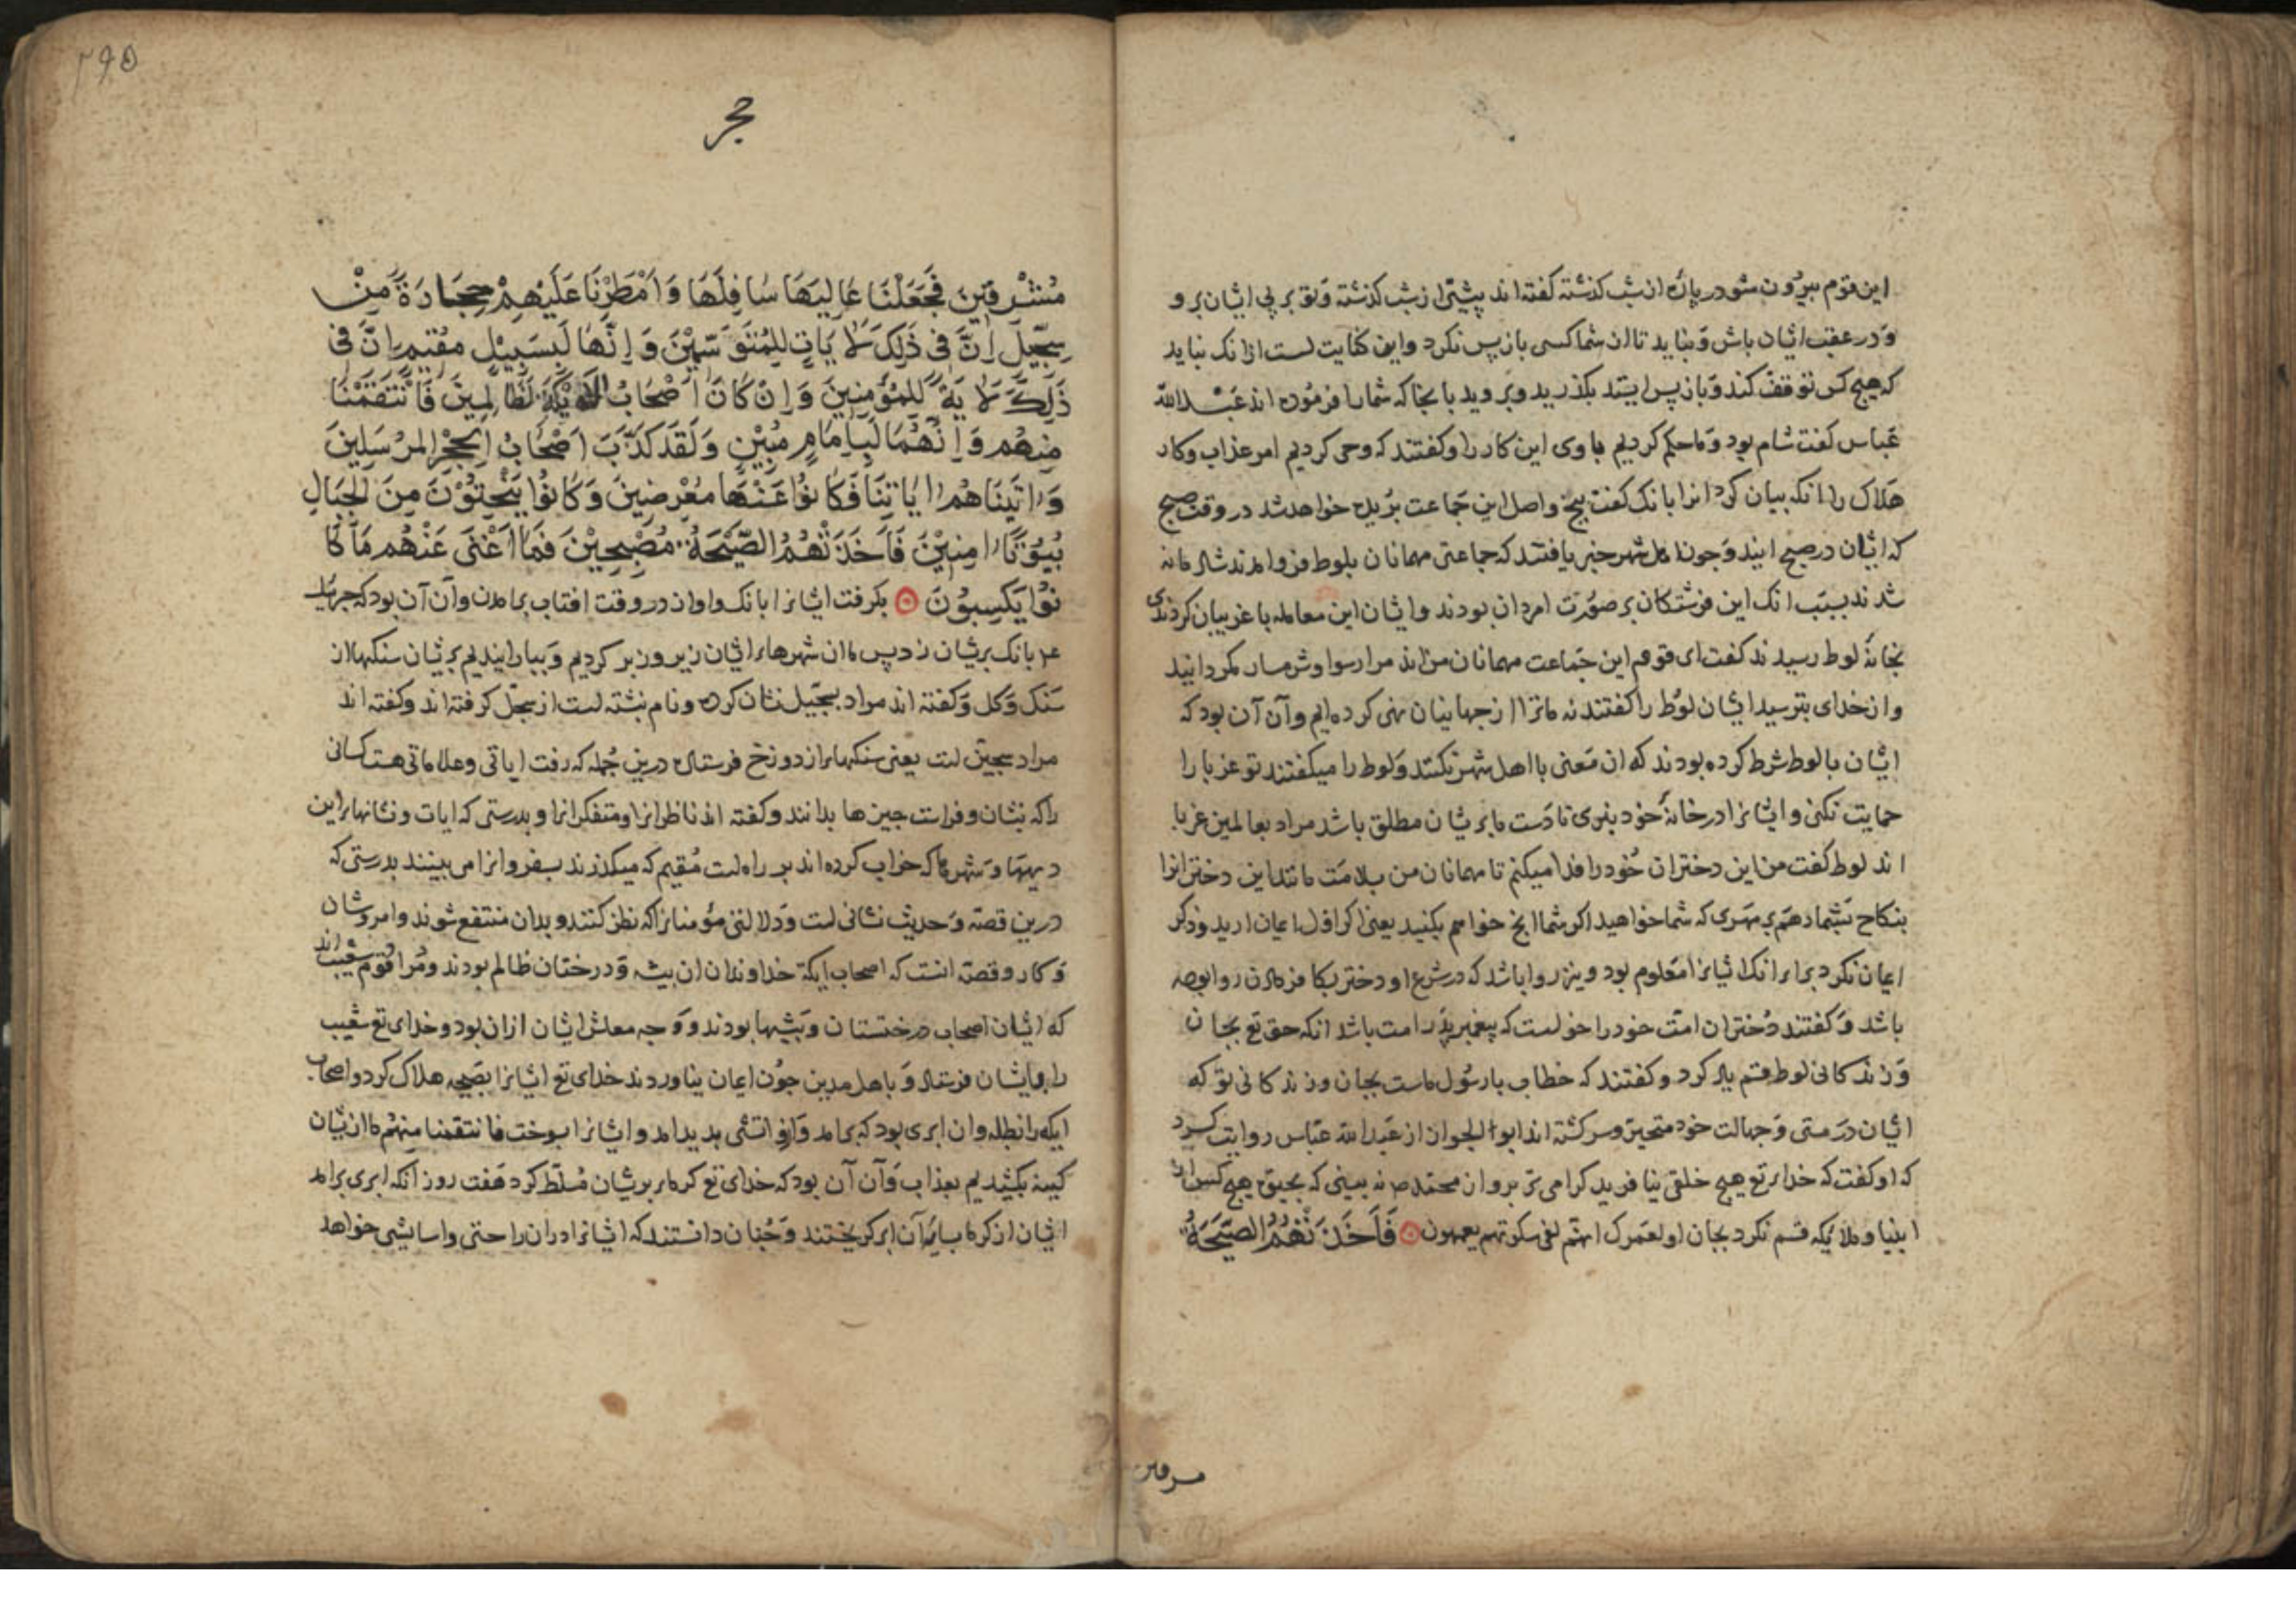 این قوم بیرون شو در پاره از شب کذشته کفته اند پیشتر از شب کذشته و تو بر پی ایشان برو
و در عقب ایشان باش و نباید تا از شما کسی باز پس نکرد و این کنایت است از انک نباید
که هیچ کس توقف کند و باز پس ایستد بکذرید و بروید بانجا که شما را فرموده اند عبد الله
عباس کفت شام بود و ما حکم کردیم با وی این کار را و کفتند که وحی کردیم امر عذاب و کار
هلاک را انکه بیان کرد انرا بانک کفت بیخ و اصل این جماعت بریده خواهد شد در وقت صبح
که ایشان در صبح ایند و چون اهل شهر خبر یافتند که جماعتی مهمانان بلوط فرو امدند شادمانه
شدند بسبب انک این فرشتکان بر صورت امردان بودند و ایشان این معامله با غریبان کردندی
بخانهٔ لوط رسیدند کفت ای قوم این جماعت مهمانان من اند مرا رسوا و شرمسار مکردانید
و از خدای بترسید ایشان لوط را کفتند نه ما ترا از جهانیان نهی کرده ایم و آن آن بود که
ایشان با لوط شرط کرده بودند که ان معنی با اهل شهر نکند و لوط را میکفتند تو غربا را
حمایت نکنی و ایشانرا در خانهٔ خود نبری تا دست ما بر یشان مطلق باشد مراد بعالمین غربا
اند لوط کفت من این دختران خود را فدا میکنم تا مهمانان من بسلامت مانند این دخترانرا
بنکاح بشما دهم بهر مهری که شما خواهید اکر شما انج خواهم بکنید یعنی اکر اول ایمان ارید و ذکر
ایمان نکرد برای انک ایشانرا معلوم بود و نیز روا باشد که در شرع او دختر بکافر دادن روا بوده
باشد و کفتند دختران امت خود را خواست که پیغمبر پدر امت باشد انکه حق تع بجان
و زندکانی لوط قسم یاد کرد و کفتند که خطاب با رسول ماست بجان و زندکانی تو که
ایشان در مستی و جهالت خود متحیر و سرکشته اند ابو الجوزا از عبد الله عباس روایت کرد
که او کفت که خدای تع هیچ خلقی نیافرید کرامی تر برو از محمد ص نه بینی که بحیوة هیچ کس از
انبیا و ملائکه قسم نکرد بجان او لعمرک انهم لفی سکرتهم یعمهون فَاَخَذَتْهُمُ الصَّيْحَةُ
مشرقین
۲۹۵
حجر
مُشْرِقِينَ فَجَعَلْنَا عَالِيَهَا سَافِلَهَا وَاَمْطَرْنَا عَلَيْهِمْ حِجَارَةً مِنْ
سِجِّيلٍ اِنَّ فِى ذٰلِكَ لَاٰيَاتٍ لِلْمُتَوَسِّمِيْنَ وَاِنَّهَا لَبِسَبِيْلٍ مُقِيْمٍ اِنَّ فِى
ذٰلِكَ لَاٰيَةً لِلْمُؤْمِنِينَ وَاِنْ كَانَ اَصْحَابُ الْاَيْكَةِ لَظَالِمِينَ فَانْتَقَمْنَا
مِنْهُمْ وَاِنَّهُمَا لَبِاِمَامٍ مُبِيْنٍ وَلَقَدْ كَذَّبَ اَصْحَابُ الْحِجْرِ الْمُرْسَلِينَ
وَاٰتَيْنَاهُمْ اٰيَاتِنَا فَكَانُوْا عَنْهَا مُعْرِضِينَ وَكَانُوْا يَنْحِتُوْنَ مِنَ الْجِبَالِ
بُيُوْتًا اٰمِنِيْنَ فَاَخَذَتْهُمُ الصَّيْحَةُ مُصْبِحِيْنَ فَمَا اَغْنٰى عَنْهُمْ مَا كَا
نُوْا يَكْسِبُوْنَ بکرفت ایشانرا بانک و اوان در وقت افتاب برامدن و آن آن بود که جبرئیل
ع م بانک بریشان زد پس ما ان شهرهای ایشان زیر و زبر کردیم و ببارانیدیم بریشان سنکها از
سنک و کل و کفته اند مراد بسجّیل نشان کرده و نام نبشته است از سجّل کرفته اند و کفته اند
مراد سجّین است یعنی سنکها را از دوزخ فرستاد درین جمله که رفت ایاتی و علاماتی هست کسانی
را که بنشان و فراست چیزها بدانند و کفته اند ناظرانرا و متفکرانرا و بدرستی که ایات و نشانهای این
دیهها و شهرها که خراب کرده اند بر راه است مقیم که میکذرند بسفر و انرا می بینند بدرستی که
درین قصه و حدیث نشانی است و دلالتی مؤمنانرا که نظر کنند و بدان منتفع شوند و امر و شان
و کار و قصه انست که اصحاب ایکة خداوندان ان بیشه و درختان ظالم بودند و مراد قوم شعیب اند
که ایشان اصحاب درختستان و بیشها بودند و وجه معاش ایشان ازان بود و خدای تع شعیب
را بایشان فرستاد و باهل مدین چون ایمان نیاوردند خدای تع ایشانرا بصیحه هلاک کرد و اصحاب
ایکه را بظله و ان ابری بود که برامد و ازو اتشی پدید امد و ایشانرا بسوخت فانتقمنا منهم ما ازیشان
کینه بکشیدیم بعذاب و آن آن بود که خدای تع کرما بریشان مسلّط کرد هفت روز انکه ابری برامد
ایشان از کرما بسایهٔ آن ابر کریختند و چنان دانستند که ایشانرا دران راحتی و اسایشی خواهد